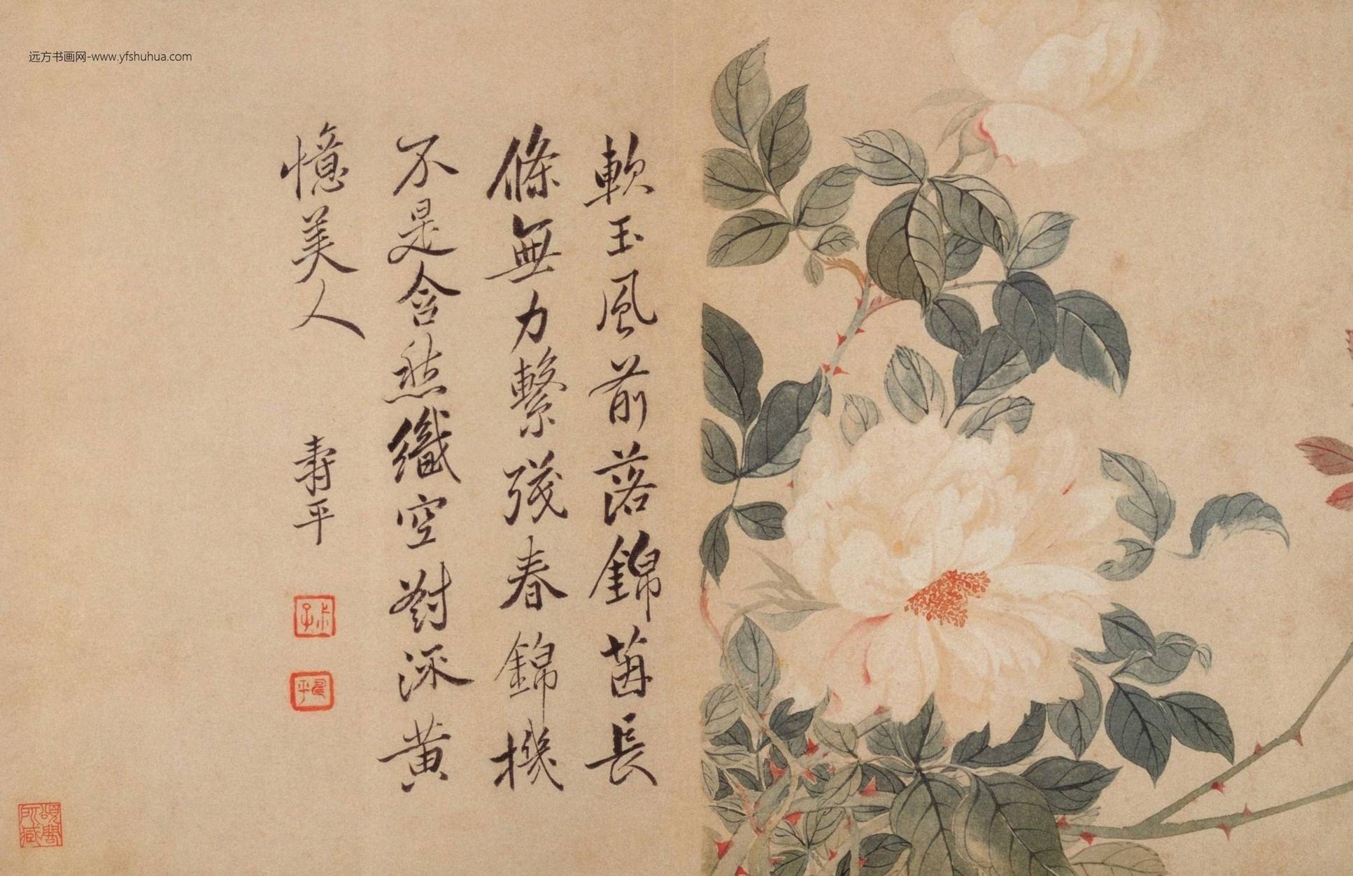 远方书画网-www.yfshuhua.com
軟玉風前落錦茵長
條無力繫殘春錦機
不是含愁織空對流黄
憶美人
壽平